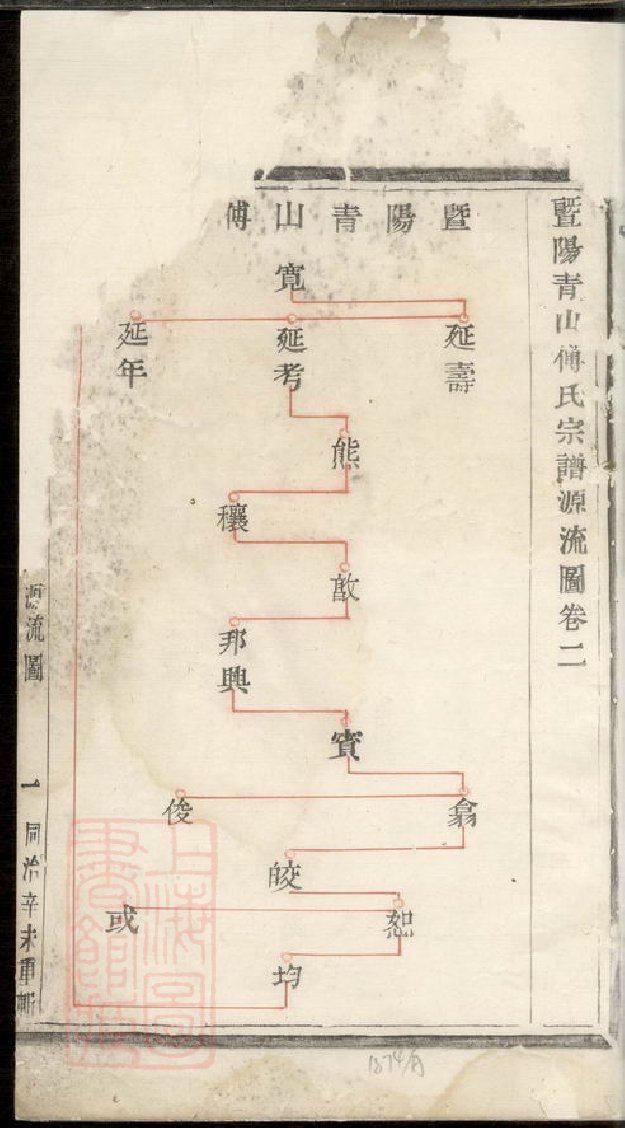 暨陽青山傅氏宗譜源流圖卷二
暨陽青山傅
寬
延壽
延考
延年
熊
穰
敌
邦興
賓
俊
翕
皎
恕
或
均
源流圖
一
同治辛未重
上海圖書館藏
1874/A